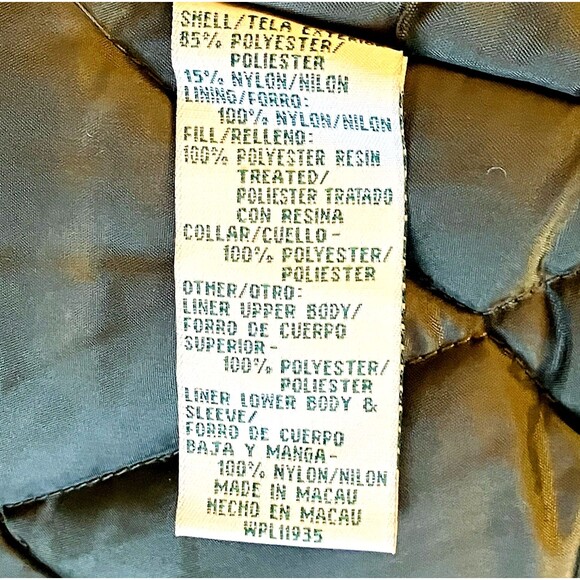 SHELL/TELA EXTERIOR
85% POLYESTER/
POLIESTER
15% NYLON/NILON
LINING/FORRO:
100% NYLON/NILON
FILL/RELLENO:
100% POLYESTER RESIN
TREATED/
POLIESTER TRATADO
CON RESINA
COLLAR/CUELLO-
100% POLYESTER/
POLIESTER
OTHER/OTRO:
LINER UPPER BODY/
FORRO DE CUERPO
SUPERIOR-
100% POLYESTER/
POLIESTER
LINER LOWER BODY &
SLEEVE/
FORRO DE CUERPO
BAJA Y MANGA-
100% NYLON/NILON
MADE IN MACAU
HECHO EN MACAU
WPL11935